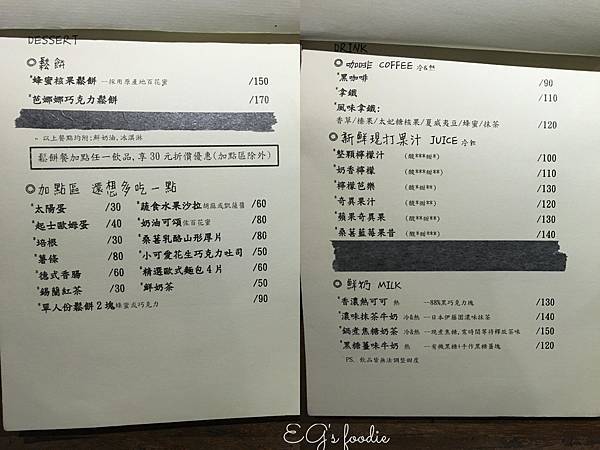 DESSERT
◎鬆餅
*蜂蜜核果鬆餅 --採用原產地百花蜜 /150
*芭娜娜巧克力鬆餅 /170
- 以上餐點均附:鮮奶油,冰淇淋
鬆餅餐加點任一飲品,享 30 元折價優惠(加點區除外)
◎加點區 還想多吃一點
*太陽蛋 /30
*起士歐姆蛋 /40
*培根 /30
*薯條 /80
*德式香腸 /60
*錫蘭紅茶 /30
*單人份鬆餅2塊蜂蜜或巧克力 /90
*蔬食水果沙拉胡麻或凱薩醬 /60
*奶油可頌佐百花蜜 /80
*桑葚乳酪山形厚片 /80
*小可愛花生巧克力吐司 /50
*精選歐式麵包4片 /60
*鮮奶茶 /50
DRINK
◎咖啡 COFFEE 冷&熱
*黑咖啡 /90
*拿鐵 /110
*風味拿鐵:
香草/榛果/太妃糖核果/夏威夷豆/蜂蜜/抹茶 /120
◎新鮮現打果汁 JUICE 冷飲
*整顆檸檬汁 (酸***甜*) /100
*奶香檸檬 (酸**甜**) /110
*檸檬芭樂 (酸*甜**) /130
*奇異果汁 (酸*甜**) /120
*蘋果奇異果 (酸*甜***) /130
*桑葚藍莓果昔 (酸**甜***) /140
◎鮮奶 MILK
*香濃熱可可 熱 --88%黑巧克力塊 /130
*濃味抹茶牛奶 冷&熱 --日本伊藤園濃味抹茶 /140
*鍋煮焦糖奶茶 冷&熱 --現煮焦糖,需時間等待釋放茶味 /150
*黑糖薑味牛奶 熱 --有機黑糖+手作黑糖薑塊 /120
PS. 飲品皆無法調整甜度
EG's foodie